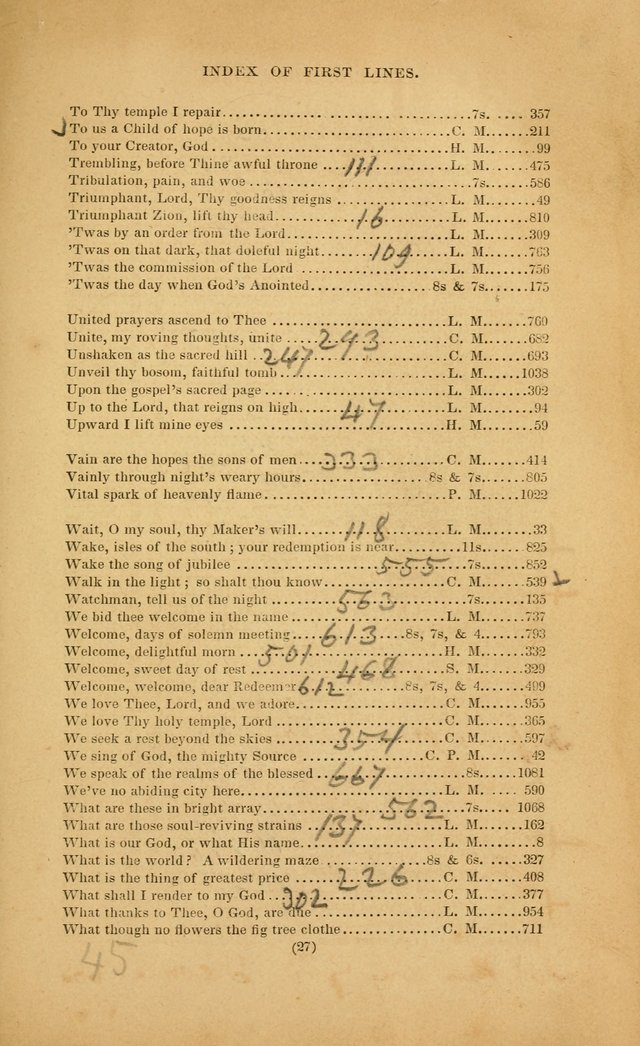 INDEX OF FIRST LINES.
To Thy temple I repair........7s.....357
To us a Child of hope is born........C. M.......211
To your Creator, God........H. M.......99
Trembling, before Thine awful throne....111....L. M.......475
Tribulation, pain, and woe........7s.......586
Triumphant, Lord, Thy goodness reigns........L. M.......49
Triumphant Zion, lift thy head....16....L. M.......810
'Twas by an order from the Lord........L. M.......309
'Twas on that dark, that doleful night....109....L. M.......763
'Twas the commission of the Lord........L. M.......756
'Twas the day when God's Anointed........8s & 7s.......175
United prayers ascend to Thee........L. M.......760
Unite, my roving thoughts, unite....293....C. M.......682
Unshaken as the sacred hill....247....C. M.......693
Unveil thy bosom, faithful tomb........L. M.......1038
Upon the gospel's sacred page........L. M.......302
Up to the Lord, that reigns on high....47....L. M.......94
Upward I lift mine eyes........H. M.......59
Vain are the hopes the sons of men....333....C. M.......414
Vainly through night's weary hours........8s & 7s.......805
Vital spark of heavenly flame........P. M.......1022
Wait, O my soul, thy Maker's will....118....L. M.......33
Wake, isles of the south; your redemption is near........11s.......825
Wake the song of jubilee....555....7s.......852
Walk in the light; so shalt thou know........C. M.......539
Watchman, tell us of the night....563....7s.......135
We bid thee welcome in the name........L. M.......737
Welcome, days of solemn meeting....613....8s, 7s, & 4.......793
Welcome, delightful morn....501....H. M.......332
Welcome, sweet day of rest....468....S. M.......329
Welcome, welcome, dear Redeemer....612....8s, 7s, & 4.......499
We love Thee, Lord, and we adore........C. M.......955
We love Thy holy temple, Lord........C. M.......365
We seek a rest beyond the skies....354....C. M.......597
We sing of God, the mighty Source........C. P. M.......42
We speak of the realms of the blessed....667....8s.......1081
We've no abiding city here........L. M.....590
What are these in bright array....562....7s.....1068
What are those soul-reviving strains....137....L. M.......162
What is our God, or what His name........L. M.......8
What is the world? A wildering maze........8s & 6s.....327
What is the thing of greatest price....226....C. M.......408
What shall I render to my God....302....C. M.......377
What thanks to Thee, O God, are due........L. M.......954
What though no flowers the fig tree clothe........C. M.......711
(27)
45